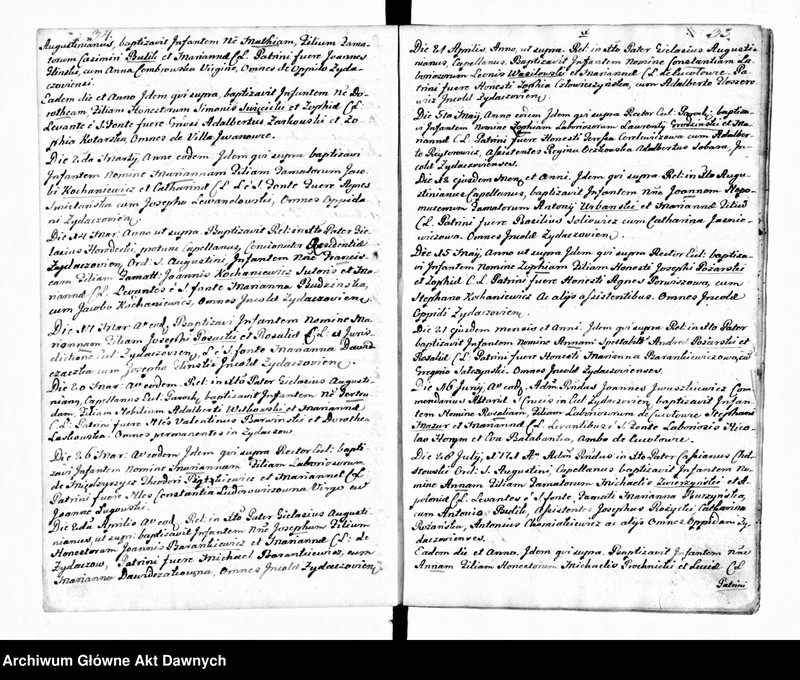 34.
Augustinianus, baptizavit Infantem Nē Mathiam, Filium Fama-
torum Casimiri Butik et Mariannæ C.L. Patrini fuere Joannes
cum Anna Combrowska Virgine, Omnes de Oppido Zyda-
czoviensi.
Eadem die et Anno Idem qui supra, baptizavit Infantem Nē Do-
rotheam, Filiam Honestorum Simonis et Zophiæ C:L:
Levante è S. Fonte fuere Gnosi Adalbertus Zarkowski et Zo-
phia Kotarska Omnes de Villa Iwanowce.
Die 2da Martij, Anno eodem Idem qui supra baptizavi
Infantem Nomine Mariannam Filiam Famatorum Jaco-
bi Kochaniewicz et Catharinæ C.L. è S. Fonte Fuere Agnes
cum Josepho Lewandowski, Omnes Oppida-
ni Zydaczovien:
Die 14 Mar: Anno ut supra. Baptizavit Rel: in Xto Pater Gie-
lasius Horodecki, protunc Capellanus, Concionator Residentiæ
Zydaczovien: Ord: S. Augustini, Infantem Nnē Francis-
cam Filiam Famatt: Joannis Kochaniewicz Sutoris et Ma-
riannæ C.L. Levantes è S. fonte Marianna Rudzinska,
cum Jacobo Kochaniewicz, Omnes Incolæ Zydaczovien:
Die 17 Mar: Av eod: Baptizavi Infantem Nomine Ma-
riannam Filiam Josephi et Rosaliæ C:L: et Juris-
dictione Ecl: Zydaczovien: L. è S. fonte Marianna Dawid-
czaczka cum Josepho Incolæ Zydaczovien:
Die 20 Mar: Av eodem. Rel: in Xto Pater Gielasius Augusti-
nian9, Capellanus Ecl: Paroch: baptizavit Infantem Nē Gertru-
dam, Filiam Nobilium Adalberti Witkowski et Mariannæ
C.L. Patrini fuere Mles Valentinus Barwinski et Dorothea
Laskowska. Omnes permanentes in Zydaczow
Die 26 Mar: Av eodem Idem qui supra Rector Ecl: bapti-
zavi Infantem Nomine Mariannam Filiam Laboriosorum
de Miedzyrzycz Theodori et Mariannæ C.L.
Patrini fuere Mles Constantia Ludorowiczowna Virgo cum
Joanne Zugowski.
Die 2da Aprilis Av eod: Rel: in Xto Pater Gielasius Augusti-
nianus, ut supr: baptizavit Infantem Nnē Josephum Filium
Honestorum Joannis Barankiewicz et Mariannæ C:L: de
Zydaczow, Patrini fuere Michael Barankiewicz, cum
Marianna Dawidczakowna, Omnes Incolæ Zydaczovien:
Die 21 Aprilis, Anno, ut supra. Rel: in Xto Pater Gielasius Augusti-
nianus, Capellanus, Baptizavit Infantem Nomine Constantiam La-
boriosorum Leonis Wasilowski et Mariannæ C.L. de Pa-
trini fuere Honesti Zophia cum Adalberto
Incolæ Zydaczovien:
Die 5ta Maij, Anno eodem Idem qui supra Rector Ecl: Paroch: baptiza-
vi Infantem Nomine Zophiam Laboriosorum Laurentij Grodzinski et Ma-
riannæ C.L. Patrini fuere Honesti Eva cum Adalber-
to Raytorowicz, Assistentes Regina Oczkowska Adalbertus Sobara, In-
colæ Zydaczovienses.
Die 12 ejusdem Mens: et Anni. Idem qui supra Rel: in Xto Augu-
stinianus Capellanus, baptizavit Infantem Nnē Joannem Nepo-
mucenum Famatorum Antonij Urbanski et Mariannæ
C.L. Patrini fuere Basilius cum Catharina
Omnes Incolæ Zydaczovien:
Die 15 Maij, Anno ut supra Idem qui supra Rector Ecl: baptiza-
vi Infantem Nomine Zophiam Filiam Honesti Josephi Pozarski
et Zophiæ C.L. Patrini fuere Honesti Agnes cum
Stephano Kochaniewicz Ac alijs assistentibus. Omnes Incolæ
Oppidi Zydaczovien:
Die 21 ejusdem mensis et Anni. Idem qui supra Rel: in Xto Pater
baptizavit Infantem Nomine Annam Spectabilis Andreæ Pozarski et
Rosaliæ C.L. Patrini fuere Honesti Marianna Barankiewiczowa, cum
Gregorio Omnes Incolæ Zydaczovienses.
Die 16 Junij, Av eod: Adm: Rndus Joannes Iwaszkiewicz Com-
mendarius Altariæ S: Crucis in Ecl: Zydaczovien: baptizavit Infan-
tem Nomine Rosaliam, Filiam Laboriosorum de Stephani
Mazur et Mariannæ C.L. Levantibus è S. Fonte Laboriosis Nico-
lao et Eva Balabunka, Ambo de
Die 28 July, 1771. Adm: Rndus in Xto Pater Cassianus
Ord: S. Augustini, Capellanus baptizavit Infantem No-
mine Annam Filiam Famatorum Michaelis Zwierzynski et A-
poloniæ C.L. Levantes è S. fonte, Famati Marianna
cum Antonio Butik, Assistente Josephus Rozycki Catharina
Rozanska, Antonius ac alijs Omnes Oppidani Zy-
daczovienses.
Eadem die et Anno, Idem qui supra. Baptizavit Infantem Nnē
Annam Filiam Honestorum Michaelis Prochnicki et Luciæ C.L.
Patrini
Archiwum Główne Akt Dawnych